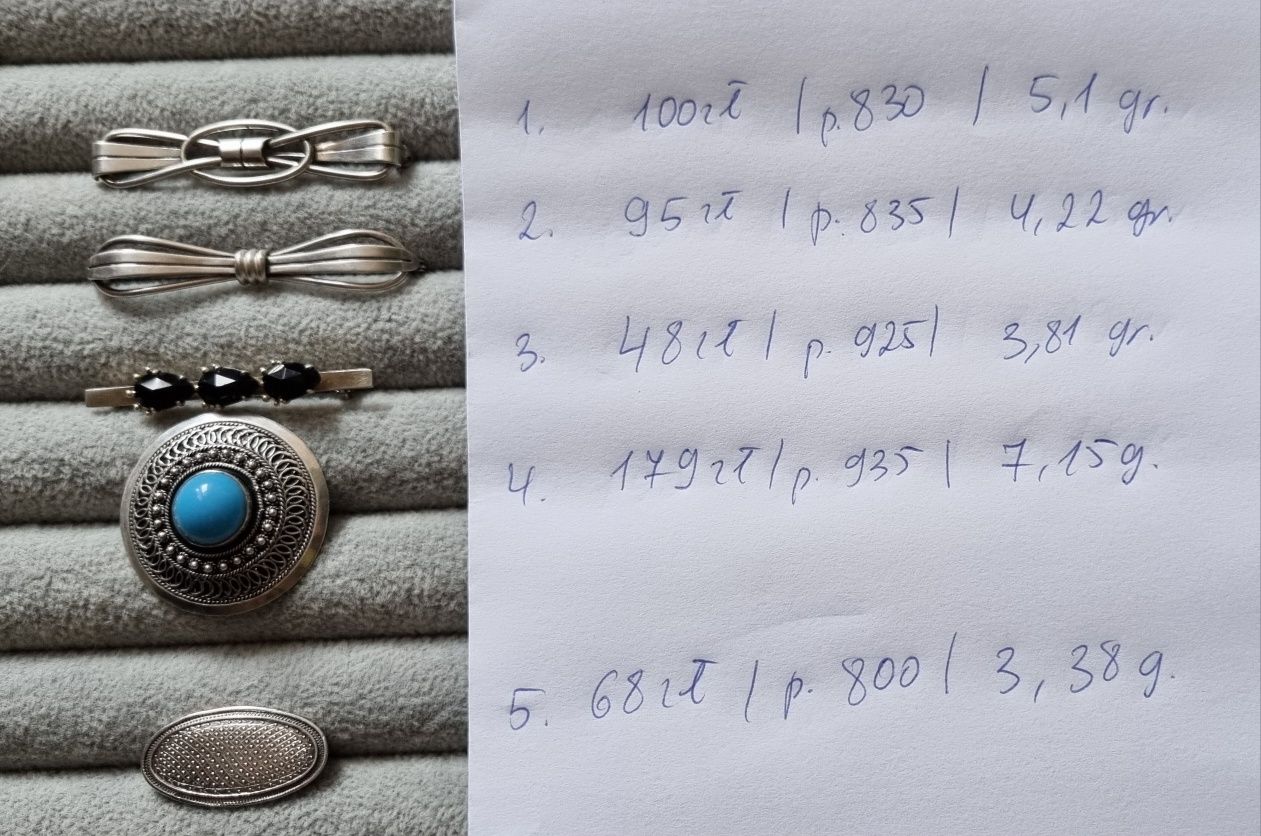 1. 100zł / p.830 / 5,1 gr.
2. 95zł / p. 835 / 4,22 gr.
3. 48zł / p. 925 / 3,81 gr.
4. 179zł / p. 935 / 7,15g.
5. 68zł / p. 800 / 3,38g.